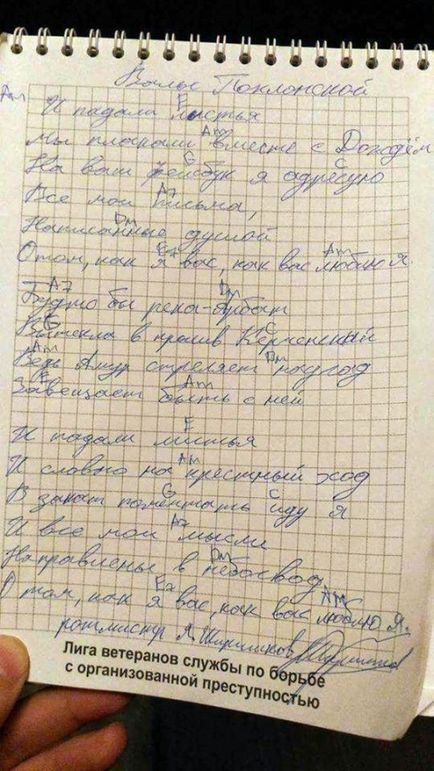 Вальс Поклонской
Am E
И падали листья
Am
Мы плакали вместе с Дождём
G C
На ваш фейсбук я адресую
A7
Все мои письма,
Dm
Написанные душой
E7 Am
О том, как я вас, как вас люблю я
A7 Dm
Будто бы река-Арбат
G C
Вытекла в пролив Керченский
Am Dm
Ведь Амур стреляет наугад
E Am
Завещает быть с ней
E
И падали листья
Am
И словно на крестный ход
G C
В закат помечтать иду я
A7
И все мои мысли
Dm
Направлены в небосвод
E7 Am
О том, как я вас, как вас люблю Я.
ротмистр Я. Ширшиков
Лига ветеранов службы по борьбе
с организованной преступностью